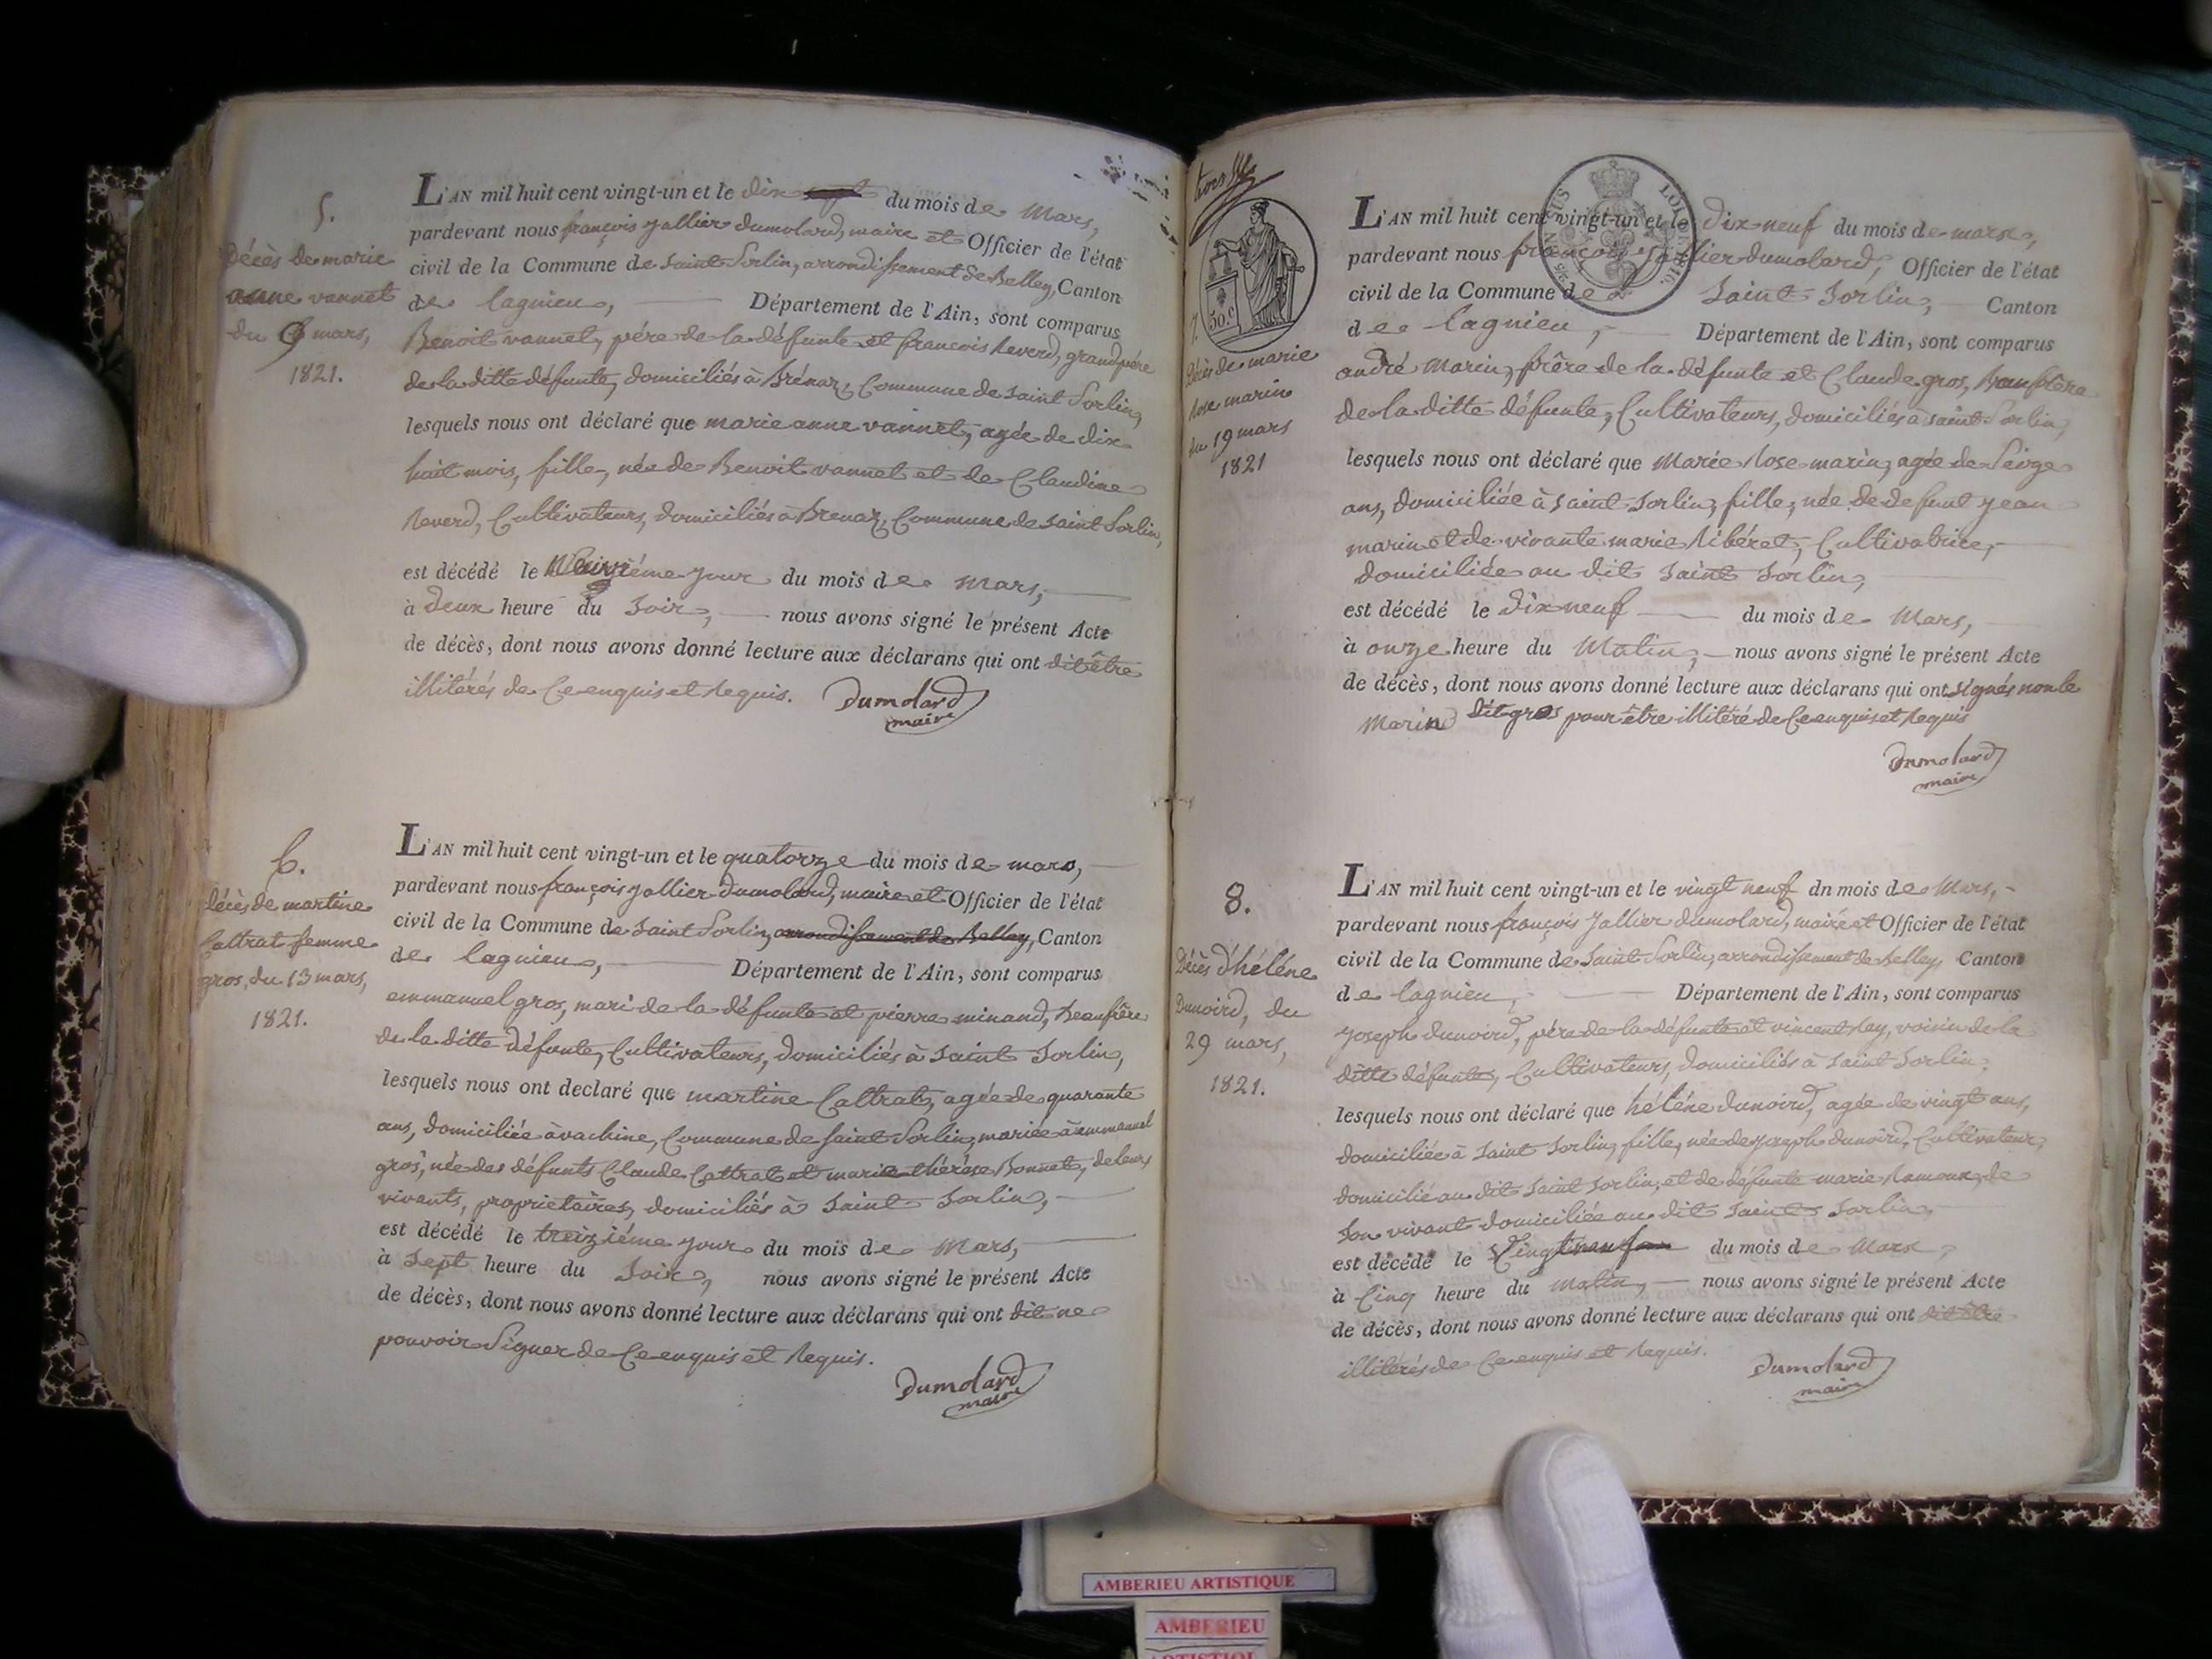 5.
Décès de marie
anne vannet
du 9 mars,
1821.
L'AN mil huit cent vingt-un et le dix du mois de Mars,
pardevant nous françois Jallier dumolard, maire et Officier de l'état
civil de la Commune de Saint Sorlin, arrondissement de Belley, Canton
de lagnieu, Département de l'Ain, sont comparus
Benoit vannet, pére de la défunte et françois Reverd, grand pére
de la ditte défunte, domiciliés à Brénaz, Commune de saint Sorlin,
lesquels nous ont déclaré que marie anne vannet, agée de dix
huit mois, fille, née de Benoit vannet et de Claudine
Reverd, Cultivateurs, domiciliés à Brenaz, Commune de saint Sorlin,
est décédé le jour du mois de Mars,
à deux heure du Soir, nous avons signé le présent Acte
de décès, dont nous avons donné lecture aux déclarans qui ont dit être
illitérés de Ce enquis et Requis. Dumolard
maire
6.
Décès de martine
Cattrat femme
gros, du 13 mars,
1821.
L'AN mil huit cent vingt-un et le quatorze du mois de mars,
pardevant nous françois Jallier dumolard, maire et Officier de l'état
civil de la Commune de Saint Sorlin, arrondissement de Belley, Canton
de lagnieu, Département de l'Ain, sont comparus
emmanuel gros, mari de la défunte et pierre minand, Beaufrère
de la ditte défunte, Cultivateurs, domiciliés à Saint Sorlin,
lesquels nous ont declaré que martine Cattrat, agée de quarante
ans, domiciliée à vachine, Commune de saint Sorlin, mariée à emmanuel
gros, née des défunts Claude Cattrat et marie thérèse Bonnet, de leurs
vivants, proprietaires, domiciliés à Saint Sorlin,
est décédé le treiziéme jour du mois de Mars,
à Sept heure du Soir, nous avons signé le présent Acte
de décès, dont nous avons donné lecture aux déclarans qui ont dit ne
pouvoir Signer de Ce enquis et Requis.
Dumolard
maire
50.c
7.
Décès de marie
Rose marin
du 19 mars
1821
L'AN mil huit cent vingt-un et le dix neuf du mois de mars,
pardevant nous françois Jallier dumolard, Officier de l'état
civil de la Commune de Saint Sorlin, Canton
de lagnieu, Département de l'Ain, sont comparus
andré Marin, frére de la défunte et Claude gros, Beaufrère
de la ditte défunte, Cultivateurs, domiciliés à saint Sorlin,
lesquels nous ont déclaré que Marie Rose marin, agée de Seize
ans, domiciliée à Saint Sorlin, fille, née de defunt jean
marin et de vivante marie Ribéret, Cultivatrice,
domiciliée au dit Saint Sorlin,
est décédé le dix neuf du mois de Mars,
à onze heure du Matin, nous avons signé le présent Acte
de décès, dont nous avons donné lecture aux déclarans qui ont signés non le
Marin dit gros pour être illitéré de Ce enquis et Requis
Dumolard
maire
8.
Décès d'héléne
Dunoird, du
29 mars,
1821.
L'AN mil huit cent vingt-un et le vingt neuf dn mois de Mars,
pardevant nous françois Jallier dumolard, maire et Officier de l'état
civil de la Commune de Saint Sorlin, arrondissement de Belley, Canton
de lagnieu, Département de l'Ain, sont comparus
joseph dunoird, pére de la défunte et vincent Ray, voisin de la
ditte défunte, Cultivateurs, domiciliés à Saint Sorlin,
lesquels nous ont déclaré que héléne dunoird, agée de vingt ans,
domiciliée à Saint Sorlin, fille, née de joseph dunoird, Cultivateur,
domicilié au dit Saint Sorlin, et de défunte marie Ramoux, de
Son vivant domiciliée au dit Saint Sorlin,
est décédé le Vingt neuf du mois de Mars,
à Cinq heure du matin, nous avons signé le présent Acte
de décès, dont nous avons donné lecture aux déclarans qui ont dit être
illitérés de Ce enquis et Requis. Dumolard
maire
AMBERIEU ARTISTIQUE
AMBERIEU
ARTISTIQUE